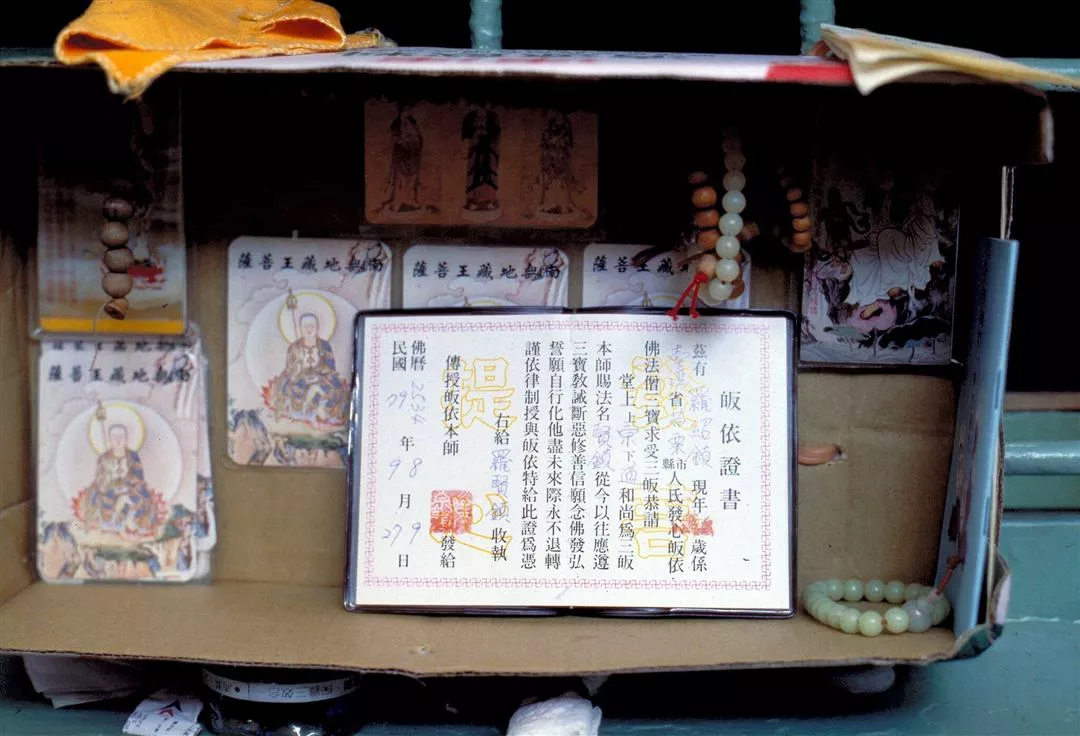 南無地藏王菩薩
南無地藏王菩薩
南無地藏王菩薩
南無地藏王菩薩
皈依證書
茲有 羅紹鎮 現年 歲係
省苗栗縣市人民發心皈依
佛法僧三寶求受三皈恭請
堂上上宗下道和尚為三皈
本師賜法名賢鎮從今以往應遵
三寶教誡斷惡修善信願念佛發弘
誓願自行化他盡未來際永不退轉
謹依律制授與皈依特給此證為憑
右給 羅賢鎮 收執
傳授皈依本師 發給
佛曆 2532 年 8 月 9 日
民國 79 年 9 月 27 日
發菩提心